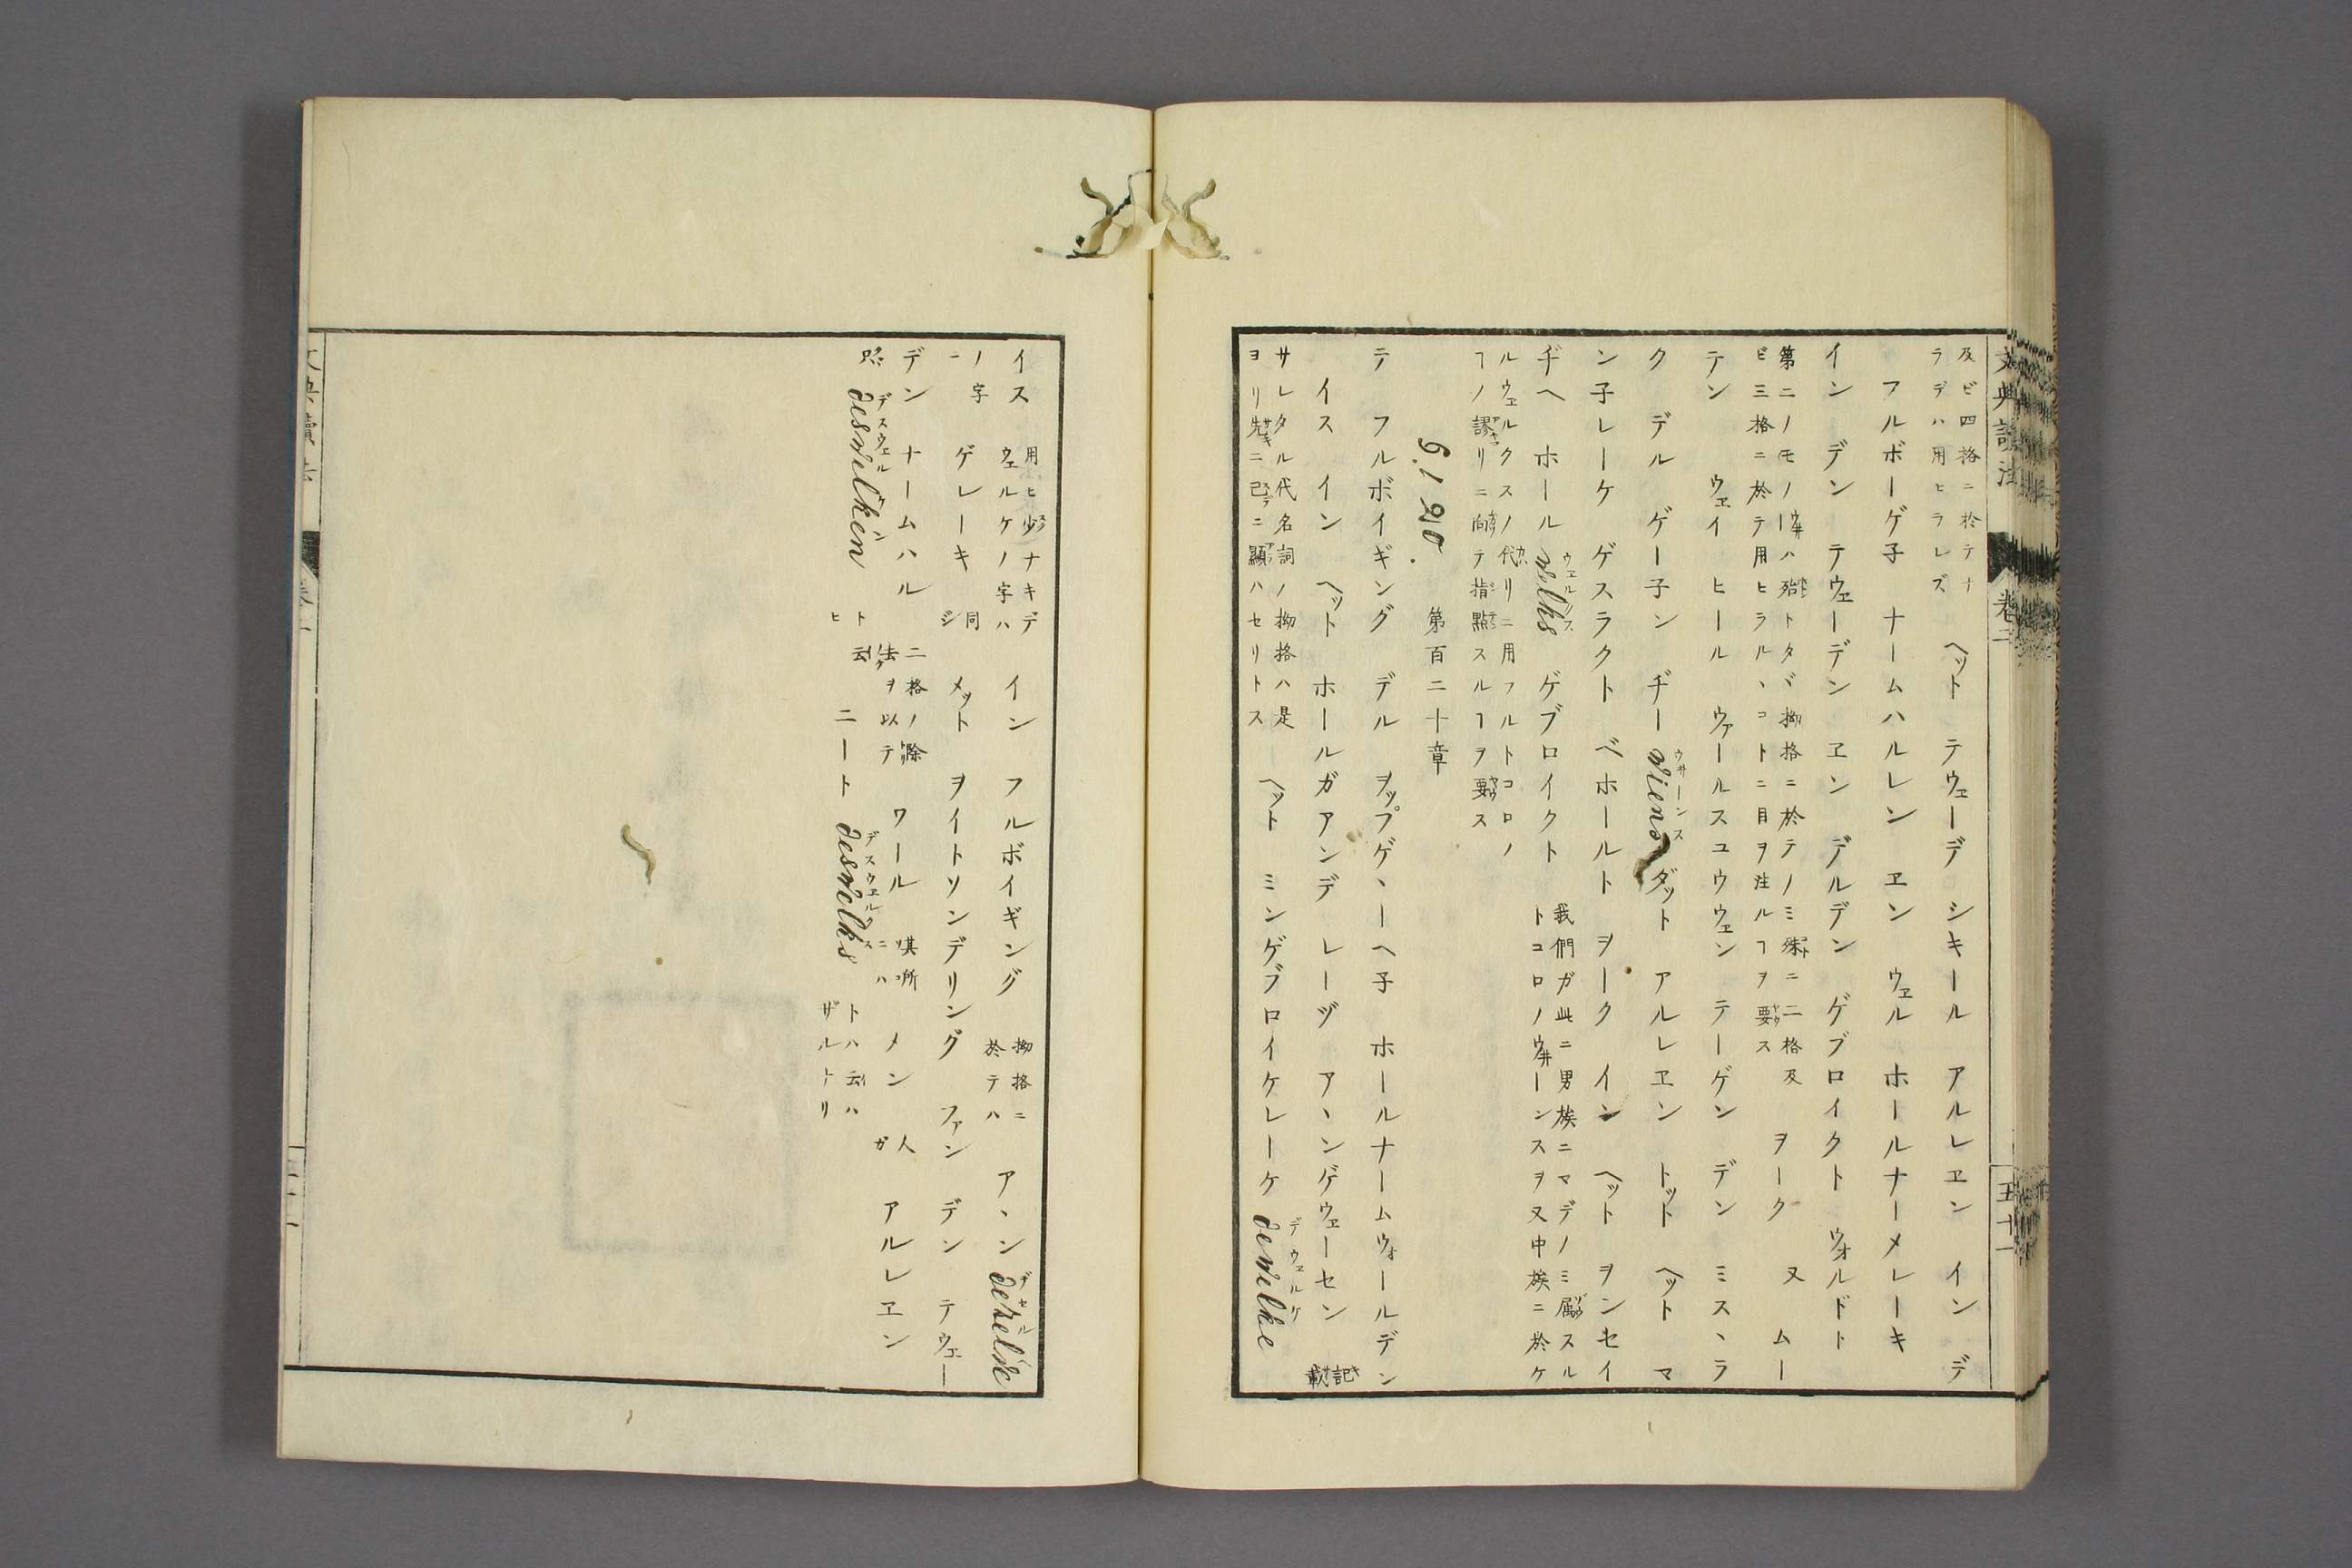 及ビ四格ニ於テナ
ラデハ用ヒラレズ
ヘット テウェーデ シキール アルレヱン イン デ
フルボーゲ子 ナームハルレン ヱン ウェル ホールナーメレーキ
イン デン テウェーデン ヱン デルデン ゲブロイクト ウォルドト
第二ノモノハ殆トタヾ拗格ニ於テノミ殊ニ二格及
ビ三格ニ於テ用ヒラルヽコトニ目ヲ注ルヿヲ要ス
ヲーク 又 ムー
テン ウェイ ヒール ヴァールスコウウェン テーゲン デン ミスヽラ
ク デル ゲー子ン ヂー wiens ウ井ーンス ダット アルレヱン トット ヘット マ
ン子レーケ ゲスラクト ベホールト ヲーク イン ヘット ヲンセイ
ヂヘ ホール welks ウェルクス ゲブロイクト
我們ガ此ニ男族ニマデノミ属スル
トコロノウ井ーンスヲ又中族ニ於ケ
ルウェルクスノ代リニ用フルトコロノ
ヿノ謬リニ向テ指點スルヿヲ要ス
§. 120. 第百二十章
テ フルボイギング デル ヲップゲヽーヘ子 ホールナームウォールデン
イス イン ヘット ホールガアンデ レーヅ アヽンゲウェーセン
記載
サレタル代名詞ノ拗格ハ是
ヨリ先ニ已ニ顯ハセリトス
ヘット ミンゲブロイケレーケ dewelke デウェルケ
文典 卷二 五十一
イス
用ヒ少ナキデ
ウェルケノ字ハ
イン フルボイギング
拗格ニ
於テハ
アヽン dezelve デセルベ
ノ字
ニ
ゲレーキ
同
ジ
メット ヲイトソンデリング ファン デン テウェー
デン ナームハル
二格ノ除
法ヲ以テ
ワール
其所
ニハ
メン
人
ガ
アルレヱン
desvelken デスウェルケン
ト云
ヒ
ニート desvelks デスウェルクス
トハ云ハ
ザルナリ